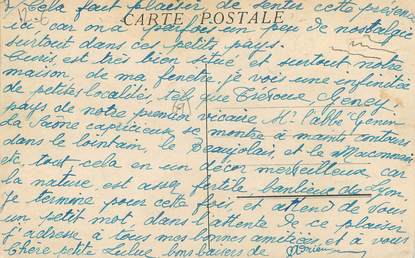 Cela fait plaisir de sentir cette présence
CARTE POSTALE
ici, car on a parfois un peu de nostalgie
surtout dans ces petits pays.
Curis, est très bien situé et surtout notre
maison, de ma fenêtre je vois une infinitée
de petites localités, tel que Trévoux Geney
pays de notre premier vicaire Mr l'abbé
La Saône capricieuse se montre à maints contours
dans le lointain, le Beaujolais, et le Maconnais
etc. tout cela en un décor merveilleux car
la nature, est assez fertile banlieue de Lyon.
Je termine pour cette fois, et attend de vous
un petit mot, dans l'attente de ce plaisir
j'adresse à tous mes bonnes amitiées, et à vous
Chère petite Lulue, bons baisers de